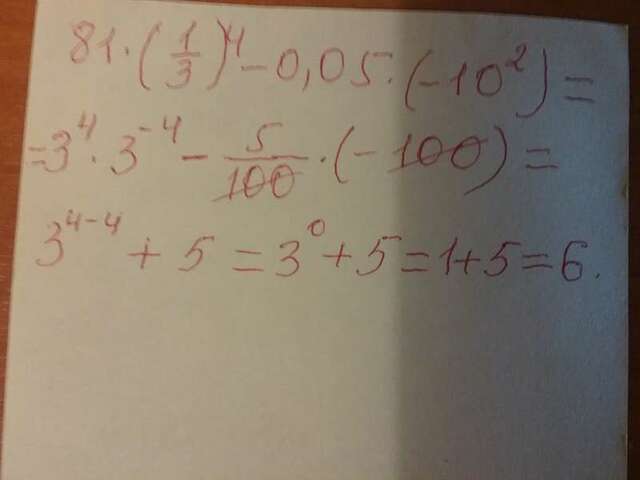 81·(1/3)⁴-0,05·(-10²)=
=3⁴·3⁻⁴-5/100·(-100)=
3⁴⁻⁴+5=3⁰+5=1+5=6.